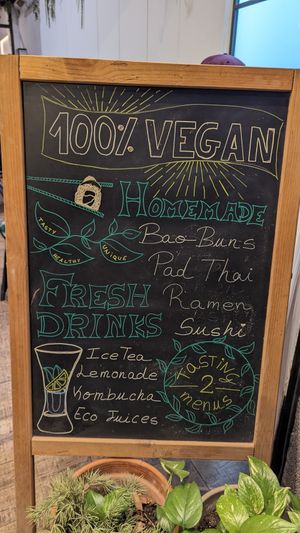 100% VEGAN
HOMEMADE
TASTY
HEALTHY
UNIQUE
Bao-Buns
Pad Thai
Ramen
Sushi
FRESH
DRINKS
Ice Tea
Lemonade
Kombucha
Eco Juices
TASTING
2
menus